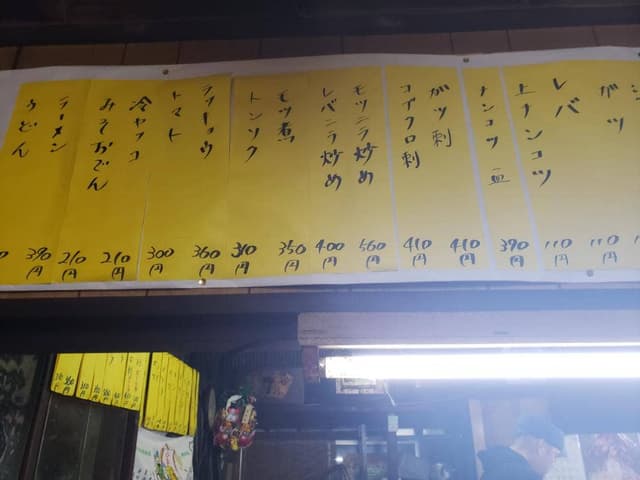 ガツ
110円
レバ
110円
上ナンコツ
ナンコツ 一皿
390円
ガツ刺
410円
コブクロ刺
410円
モツニラ炒め
560円
レバニラ炒め
400円
モツ煮
350円
トンソク
310円
ラッキョウ
360円
トマト
300円
冷ヤッコ
210円
みそおでん
210円
ラーメン
390円
うどん